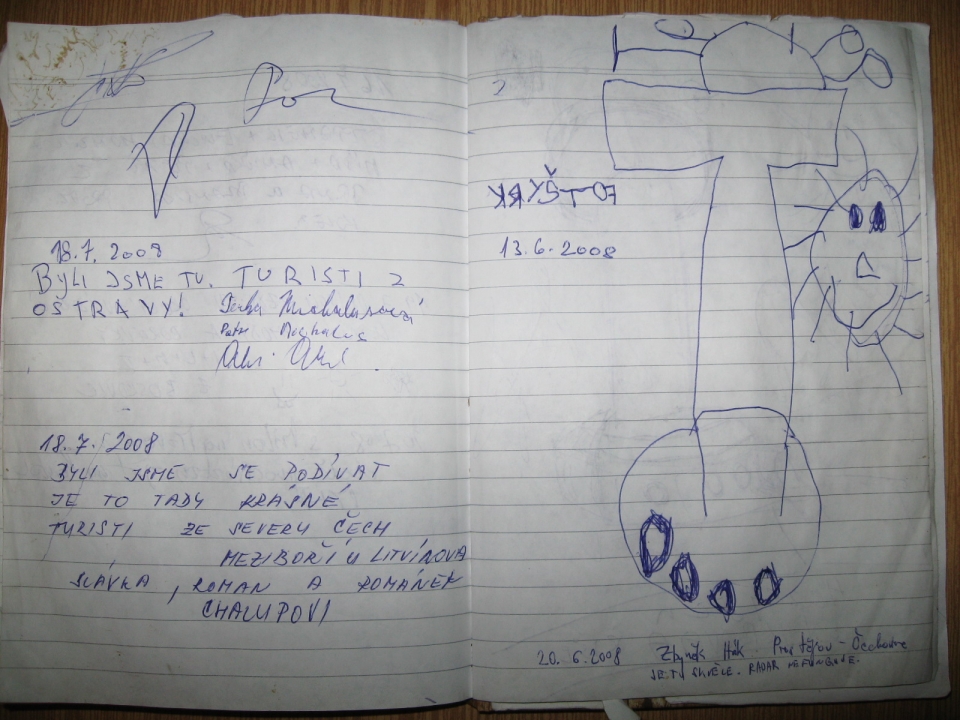 18.7. 2008
BYLI JSME TU. TURISTI Z
OSTRAVY!
Petr Michalus
18.7. 2008
BYLI JSME SE PODÍVAT
JE TO TADY KRÁSNÉ
TURISTI ZE SEVERU ČECH
MEZIBOŘÍ U LITVÍNOVA
SLÁVKA, ROMAN A ROMÁNEK
CHALUPOVI
13.6.2008
20.6.2008 Zbyněk Prostějov - Čechovice
JE TU SKVĚLE. RADAR NEFUNGUJE.